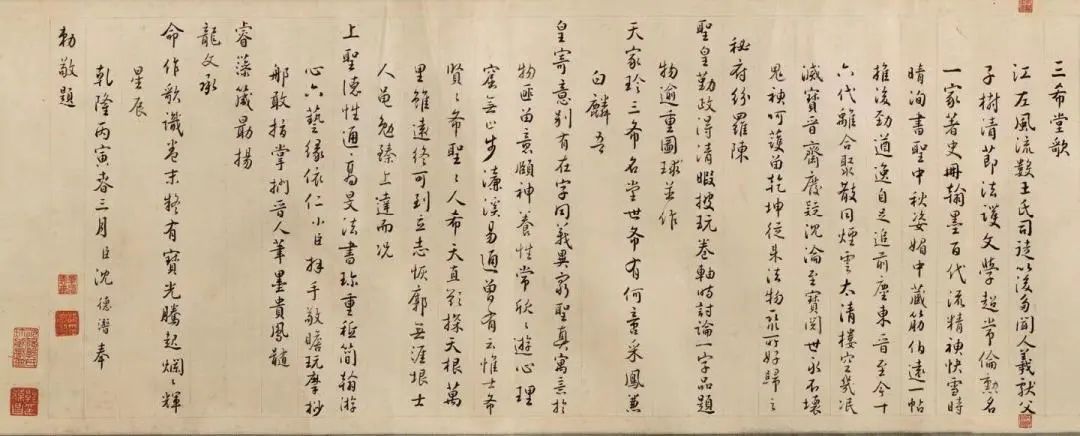 三希堂歌
江左風流數王氏司徒以後多聞人羲獻父
子樹清節法護文學超常倫勲名
一家著史冊翰墨百代流精神快雪時
晴洵書聖中秋姿媚中藏筋伯遠一帖
推後勁遒逸自足追前塵東晉至今十
六代離合聚散同煙雲太清樓空幾泯
滅寶晉齋廢疑沈淪至寶閱世永不壞
鬼神呵護留乾坤從來法物聚所好歸之
秘府紛羅陳
聖皇勤政得清暇披玩卷軸時討論一字品題
物逾重圖球並作
天家珍三希名堂世希有何啻采鳳兼
白麟吾
皇寄意別有在字同義異窮聖真寓意於
物匪留意頤神養性常欣欣遊心理
窟無止步濂溪易通曾有云惟士希
賢賢希聖聖人希天直欲探天根萬
里雖遠終可到立志恢廓無涯垠士
人黽勉臻上達而況
上聖德性通高旻法書珍重極簡翰游
心六藝緣依仁小臣拜手敬瞻玩摩挲
那敢指掌捫晉人筆墨貴鳳髓
睿藻箴勗揚
龍文承
命作歌識卷末疑有寶光騰起爛爛輝
星辰
乾隆丙寅春三月臣沈德潛奉
勅敬題